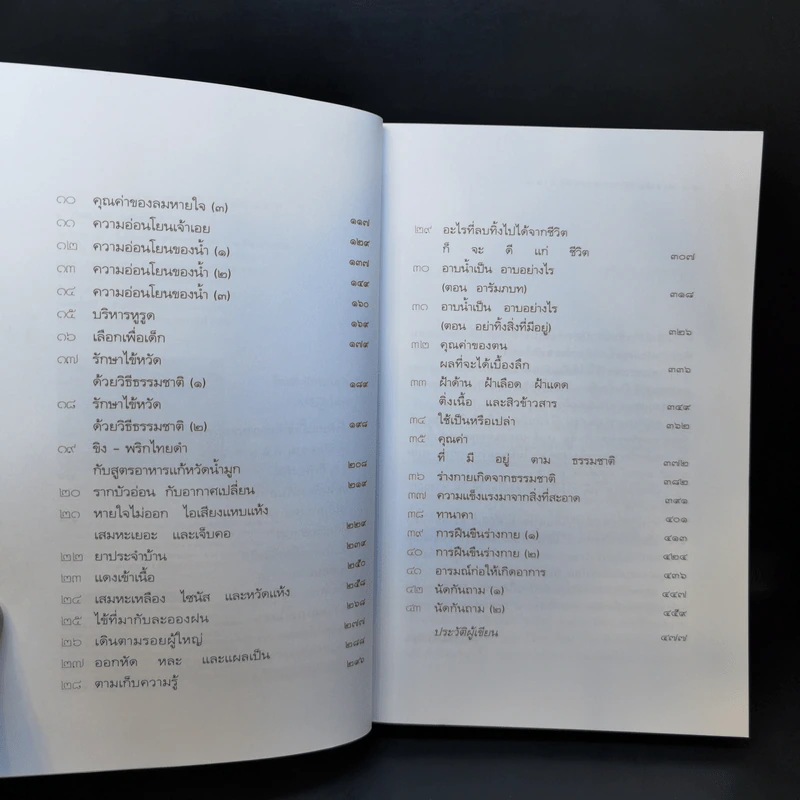 ๑๐ คุณค่าของลมหายใจ (๓) ๑๑๗
๑๑ ความอ่อนโยนเจ้าเอย ๑๒๙
๑๒ ความอ่อนโยนของน้ำ (๑) ๑๓๗
๑๓ ความอ่อนโยนของน้ำ (๒) ๑๔๙
๑๔ ความอ่อนโยนของน้ำ (๓) ๑๖๐
๑๕ บริหารหูรูด ๑๖๙
๑๖ เลือกเพื่อเด็ก ๑๗๙
๑๗ รักษาไข้หวัด
ด้วยวิธีธรรมชาติ (๑) ๑๘๙
๑๘ รักษาไข้หวัด
ด้วยวิธีธรรมชาติ (๒) ๑๙๘
๑๙ ขิง - พริกไทยดำ
กับสูตรอาหารแก้หวัดน้ำมูก ๒๐๘
๒๐ รากบัวอ่อน กับอากาศเปลี่ยน ๒๑๙
๒๑ หายใจไม่ออก ไอเสียงแหบแห้ง
เสมหะเยอะ และเจ็บคอ ๒๒๙
๒๒ ยาประจำบ้าน ๒๓๙
๒๓ แตงเข้าเนื้อ ๒๕๐
๒๔ เสมหะเหลือง ไซนัส และหวัดแห้ง ๒๕๘
๒๕ ไข้ที่มากับละอองฝน ๒๖๘
๒๖ เดินตามรอยผู้ใหญ่ ๒๗๗
๒๗ ออกหัด หละ และแผลเป็น ๒๘๘
๒๘ ตามเก็บความรู้ ๒๙๖
๒๙ อะไรที่ลบทิ้งไปได้จากชีวิต
ก็ จะ ดี แก่ ชีวิต ๓๐๗
๓๐ อาบน้ำเป็น อาบอย่างไร
(ตอน อารัมภบท) ๓๑๘
๓๑ อาบน้ำเป็น อาบอย่างไร
(ตอน อย่าทิ้งสิ่งที่มีอยู่) ๓๒๖
๓๒ คุณค่าของตน
ผลที่จะได้เบื้องลึก ๓๓๖
๓๓ ฝ้าด้าน ฝ้าเลือด ฝ้าแดด
ติ่งเนื้อ และสิวข้าวสาร ๓๔๙
๓๔ ใช้เป็นหรือเปล่า ๓๖๒
๓๕ คุณค่า
ที่ มี อยู่ ตาม ธรรมชาติ ๓๗๒
๓๖ ร่างกายเกิดจากธรรมชาติ ๓๘๒
๓๗ ความแข็งแรงมาจากสิ่งที่สะอาด ๓๙๑
๓๘ ทานาคา ๔๐๑
๓๙ การฝืนขืนร่างกาย (๑) ๔๑๓
๔๐ การฝืนขืนร่างกาย (๒) ๔๒๔
๔๑ อารมณ์ก่อให้เกิดอาการ ๔๓๖
๔๒ นัดกันถาม (๑) ๔๔๗
๔๓ นัดกันถาม (๒) ๔๕๙
ประวัติผู้เขียน ๔๗๗